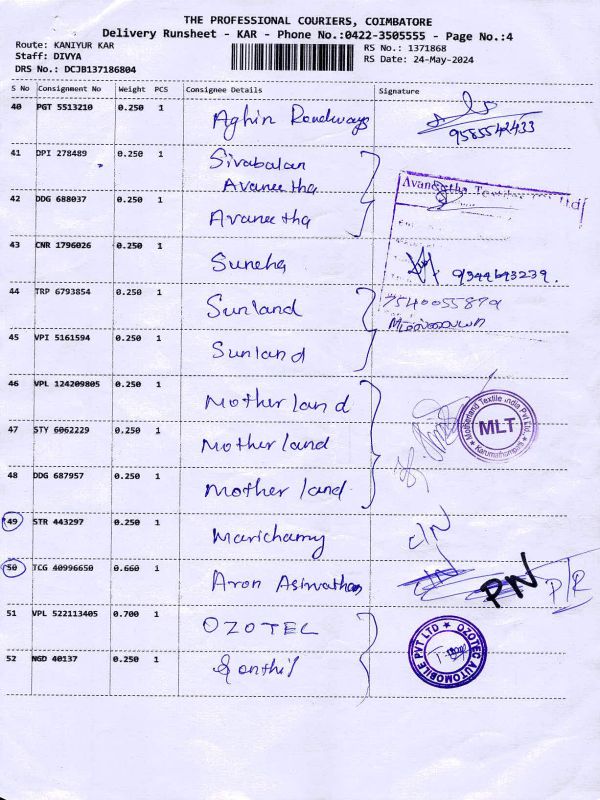 THE PROFESSIONAL COURIERS, COIMBATORE
Delivery Runsheet - KAR - Phone No.:0422-3505555 - Page No.:4
Route: KANIYUR KAR
RS No.: 1371868
Staff: DIVYA
RS Date: 24-May-2024
DRS No.: DCJB137186804
S No Consignment No Weight PCS Consignee Details Signature
40 PGT 5513210 0.250 1 Aghin Roadways
9585542433
41 DPI 278489 0.250 1 Sivabalan
Avaneetha
42 DDG 688037 0.250 1 Avaneetha
43 CNR 1796026 0.250 1 Suneha
44 TRP 6793854 0.250 1 Sunland
7540055879
45 VPI 5161594 0.250 1 Sunland
46 VPL 124209805 0.250 1 Motherland
Motherland Textile India Pvt Ltd
MLT
Karumathampatti
47 STY 6062229 0.250 1 Motherland
48 DDG 687957 0.250 1 Motherland
49 STR 443297 0.250 1 Marichamy C/N
50 TCG 40996650 0.660 1 Aron Asirvatham C/N P/N P/R
51 VPL 522113405 0.700 1 OZOTEC
OZOTEC AUTOMOBILE PVT LTD
52 NGD 40137 0.250 1 Senthil